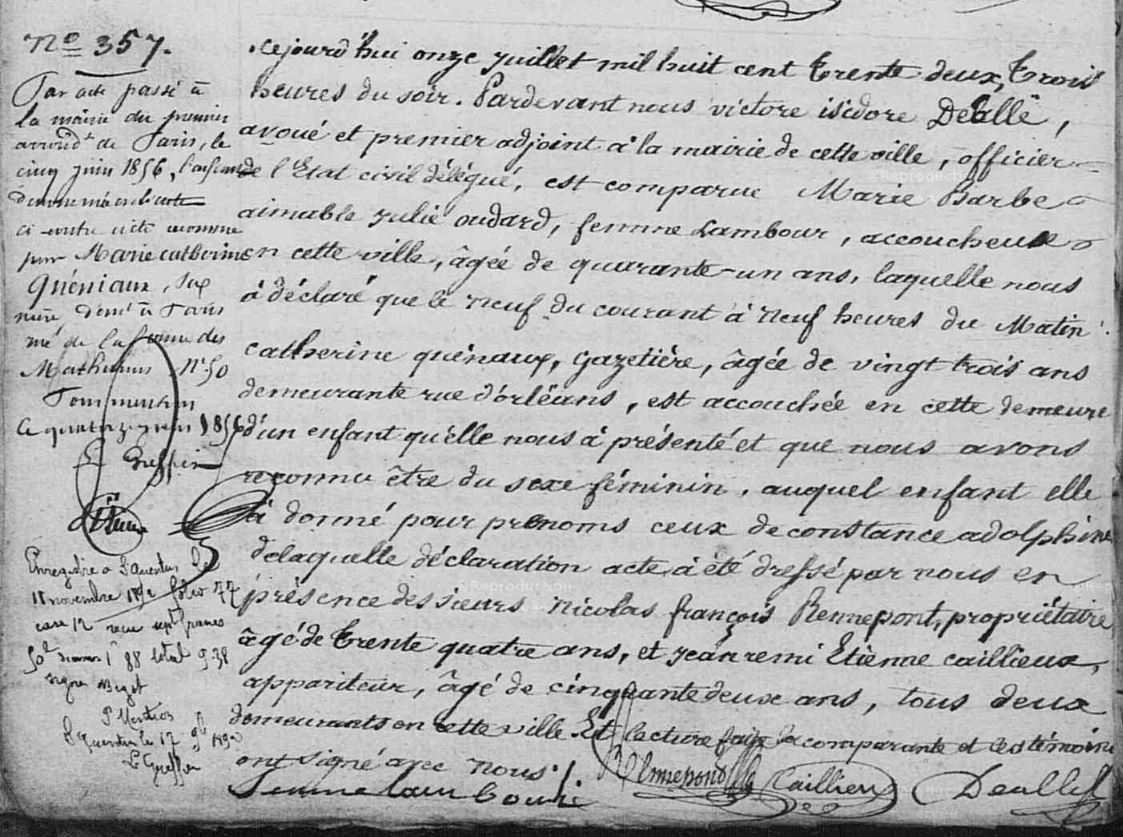 No 357.
Par acte passé à
la mairie du premier
arrondt de Paris, le
cinq juin 1856, l'enfant
dénommé en l'acte
ci-contre a été reconnue
par Marie catherine
Quéniaux,
domé à Paris
des
Mathurins No 50
ce quatorze juin 1856
Le Greffier
Enregistré à St Quentin le
18 novembre folio 77
case 12 reçu sept francs
50c 1f 88 total 9 38
signé
St Quentin le 17
Le Greffier
cejourd'hui onze juillet mil huit cent trente deux, trois
heures du soir. Pardevant nous victore isidore Deallé,
avoué et premier adjoint à la mairie de cette ville, officier
de l'Etat civil délégué, est comparue Marie Barbe
aimable julie oudard, femme Lambour, accoucheuse
en cette ville, âgée de quarante-un ans, laquelle nous
à déclaré que le neuf du courant à neuf heures du Matin
catherine quénaux, gazetière, âgée de vingt trois ans
demeurante rue d'orléans, est accouchée en cette demeure
d'un enfant qu'elle nous à présenté et que nous avons
reconnu être du sexe féminin, auquel enfant elle
à donné pour prénoms ceux de constance adolphine
delaquelle déclaration acte à été dressé par nous en
présence des sieurs Nicolas françois Rennepont, propriétaire
âgé de trente quatre ans, et jean remi Etienne caillieux,
appariteur, âgé de cinquante deux ans, tous deux
demeurants en cette ville Et lecture faite la comparante et les témoins
ont signé avec nous.
Rennepond Caillieux Deallé
femme lambour